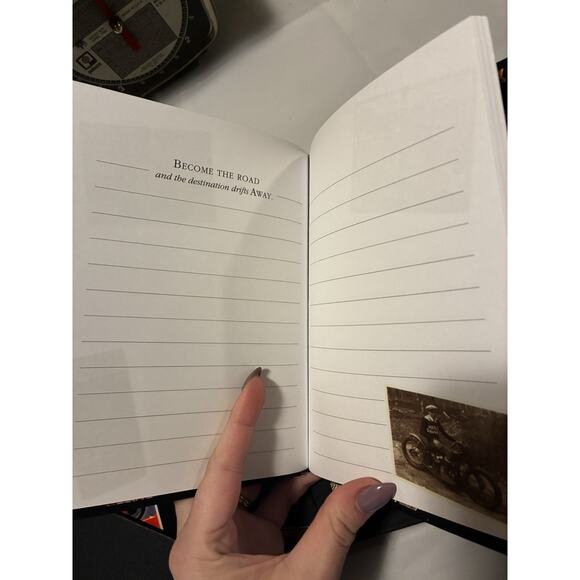 BECOME THE ROAD
and the destination drifts AWAY.